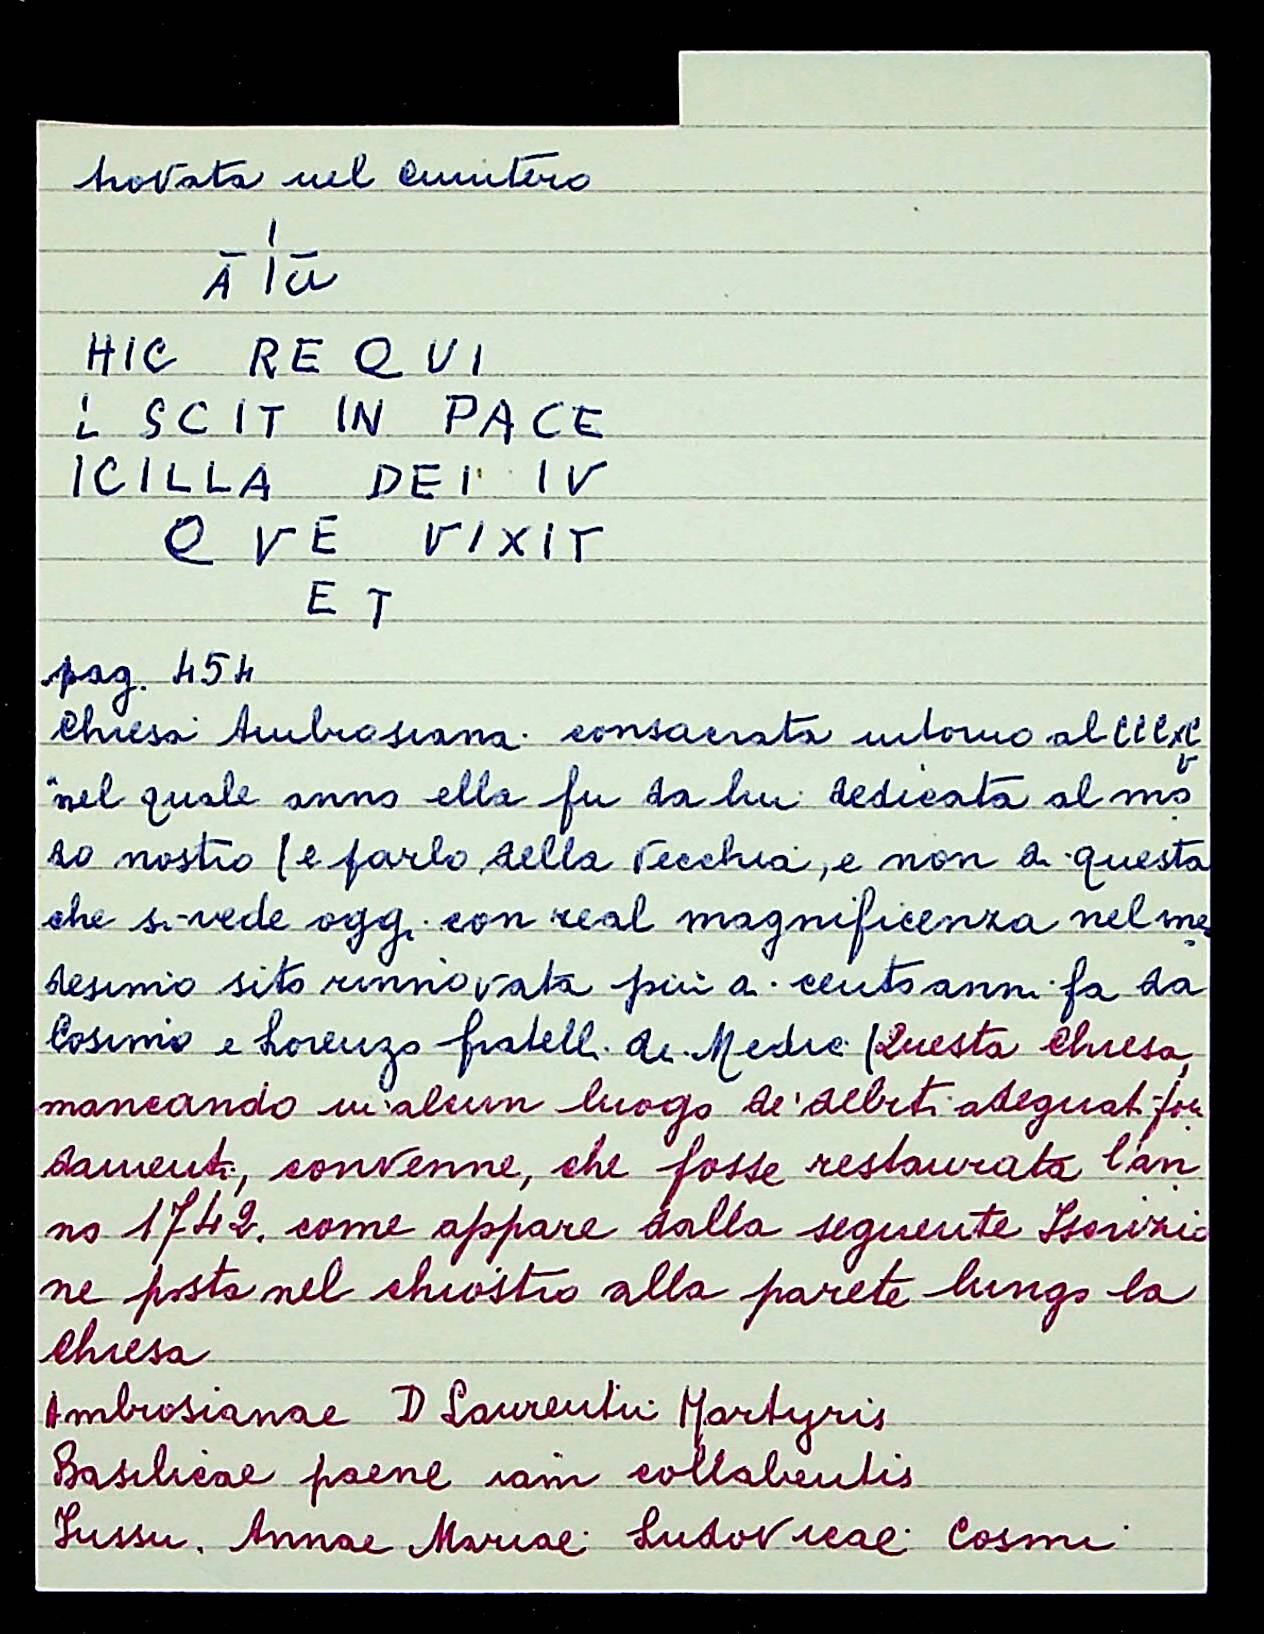 trovata nel cimitero
A ω
HIC REQUI
SCIT IN PACE
ICILLA DEI IV
QVE VIXIT
ET
pag. 454
Chiesa Ambrosiana consacrata intorno al CCCXC
V
"nel quale anno ella fu da lui dedicata al mo
do nostro (e parlo della vecchia, e non di questa
che si vede oggi con real magnificenza nel me
desimo sito rinnovata più di cento anni fa da
Cosimo e Lorenzo fratelli de Medici (Questa Chiesa,
mancando in alcun luogo de' debiti adeguati fon
damenti, convenne, che fosse restaurata l'an
no 1742. come appare dalla seguente Iscrizio
ne posta nel chiostro alla parete lungo la
Chiesa
Ambrosianae D Laurentii Martyris
Basilicae paene iam collabentis
Iussu. Annae Mariae Ludovicae Cosmi